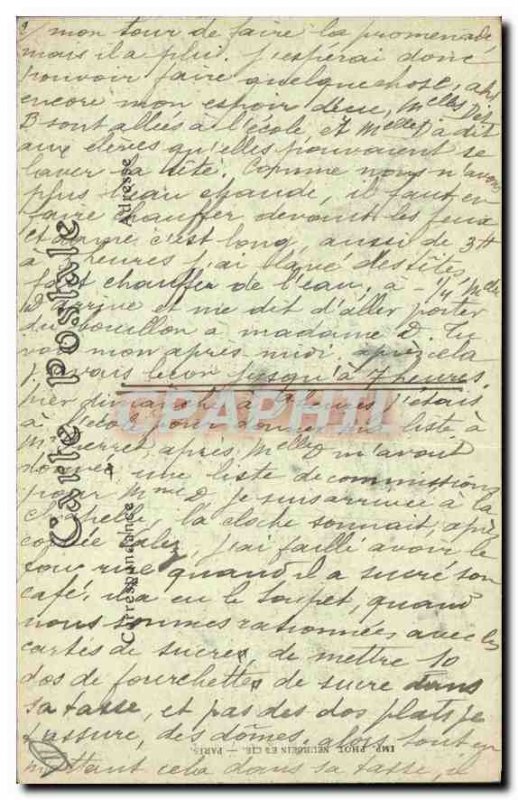 mon tour de faire la promenade,
mais il a plu. J'espérai donc
pouvoir faire quelque chose,
encore mon espoir déçu, Melles D et
B sont allées à l'école, et Melle D a dit
aux élèves qu'elles pouvaient se
laver la tête. Comme nous n'avons
plus d'eau chaude, il faut en
faire chauffer devant les feux
et dame c'est long, aussi de 3 H
à heures j'ai lavé des têtes,
fait chauffer de l'eau, à 1/4 Melle
D arrive et me dit d'aller porter
du bouillon à madame D. Tu
vois mon après midi, après cela
j'avais leçon jusqu'à 7 heures.
hier dimanche à heures j'étais
à l'école pour donner une liste à
après, Melle D m'avait
donné une liste de commissions
pour Mme D je suis arrivée à la
chapelle, la cloche sonnait, après
j'ai failli avoir le
fou rire quand il a sucré son
café, il a eu le toupet, quand
nous sommes rationnées avec les
cartes de sucre, de mettre 10
dos de fourchettes de sucre dans
sa tasse, et pas des dos plats je
t'assure, des dômes, alors tout en
mettant cela dans sa tasse, il
Carte postale
Correspondance
Adresse
IMP. PHOT. NEURDEIN ET CIE — PARIS
CPAPHIL